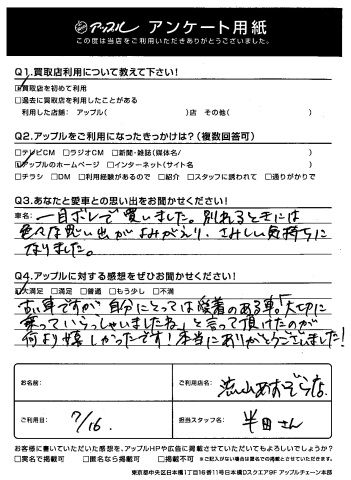 アップル アンケート用紙
この度は当店をご利用いただきありがとうございました。
Q1.買取店利用について教えて下さい!
☑買取店を初めて利用
□過去に買取店を利用したことがある
利用した店舗: アップル( )店 その他( )
Q2.アップルをご利用になったきっかけは?(複数回答可)
☑テレビCM □ラジオCM □新聞・雑誌(媒体名/ )
☑アップルのホームページ □インターネット(サイト名 )
□チラシ □DM □利用経験があるので □紹介 □スタッフに誘われて □通りがかりで
Q3.あなたと愛車との思い出をお聞かせください!
車名: 一目ボレで買いました。別れるときには
色々な思い出がよみがえり、さみしい気持ちに
なりました。
Q4.アップルに対する感想をぜひお聞かせください!
☑大満足 □満足 □普通 □もう少し □不満
古い車ですが自分にとっては愛着のある車。「大切に
乗っていらっしゃいましたね」と言って頂けたのが
何より嬉しかったです!本当にありがとうございました!
お名前:
ご利用店名: 流山おおぞら店
ご利用日: 7/16.
担当スタッフ名: 半田さん
お客様に書いていただいた感想を、アップルHPや広告に掲載させていただいてもよろしいでしょうか?
□実名で掲載可 □匿名なら掲載可 □掲載不可 ※ご記入がない場合は匿名での掲載とさせていただきます。
東京都中央区日本橋1丁目16番11号日本橋Dスクエア9F アップルチェーン本部